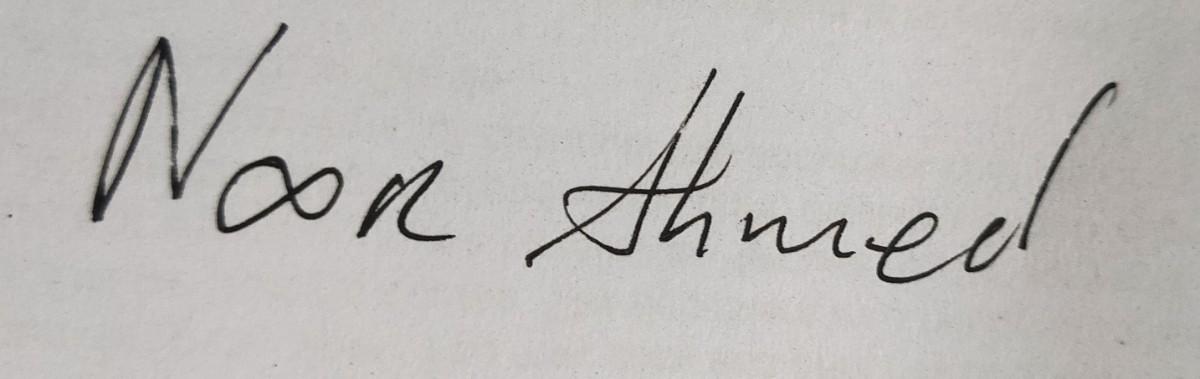 Noor Ahmed